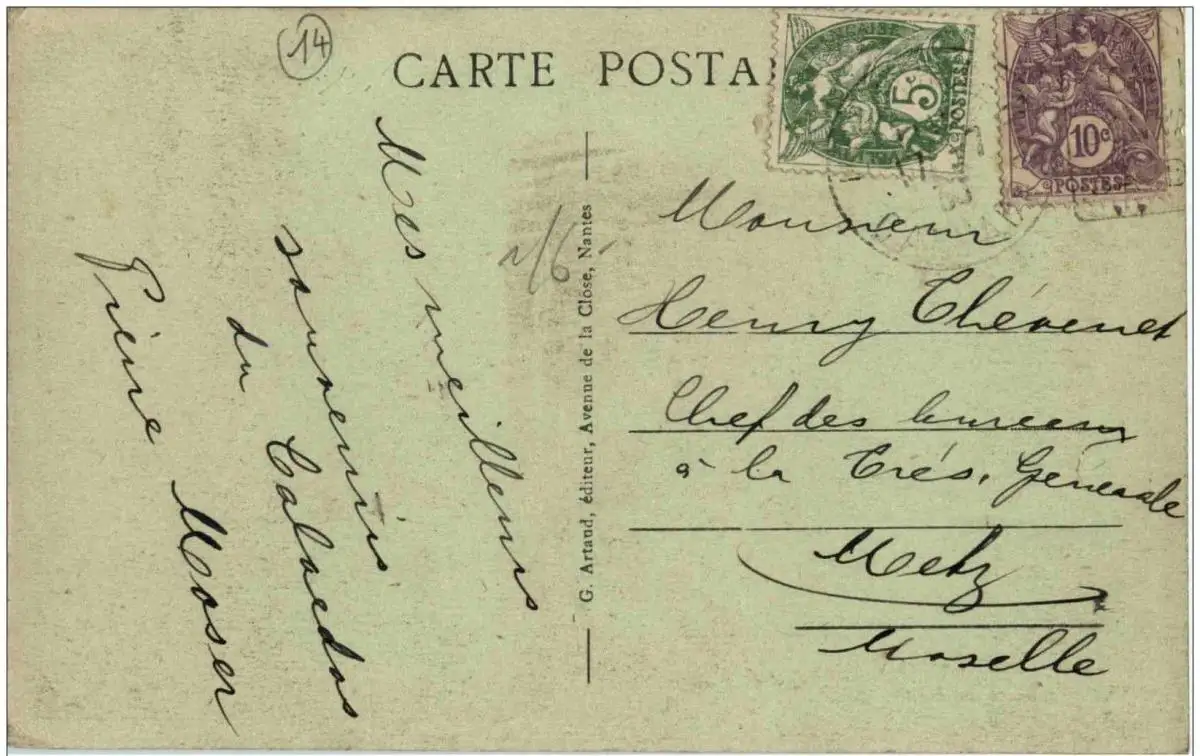 14
CARTE POSTA
FRANÇAISE
5c
POSTES
10c
POSTES
17
Mes meilleurs
souvenirs
du
Calvados
Pierre Moser
G. Artaud, éditeur, Avenue de la Close, Nantes
Monsieur
Henry Thévenet
Chef des bureaux
à la Trés. Générale
Metz
Moselle